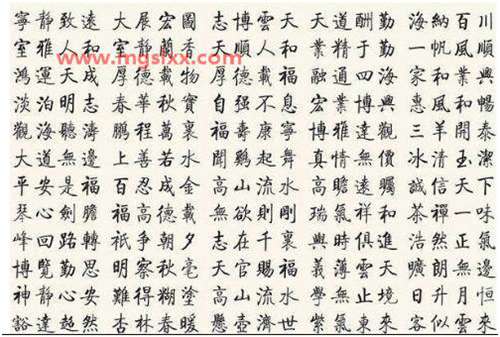 寧靜致遠 大展宏圖 志博雲天 天道酬勤 海納百川
室雅人和 室靜蘭香 志順人和 業精于勤 一帆風順
www.mgslxx.com
鴻運天成 厚德載物 厚德載福 融通四海 家和業興
淡泊明志 春華秋實 自强不息 宏業博興 惠風和暢
觀海聽濤 鵬程萬裏 福壽康寧 博雅達觀 三羊開泰
大道無邊 上善若水 聞鷄起舞 真情無價 冰清玉潔
平安是福 百忍成金 高山流水 高瞻遠矚 誠信天下
琴心劍膽 福高德載 無欲則剛 瑞氣祥和 茶禪一味
峰回路轉 祇争朝夕 志在千裏 興時俱進 浩然正氣
博覽勤思 明察秋毫 天官賜福 義薄雲天 曠朗無邊
神静心安 難得糊塗 高山流水 學無止境 日升月恒
豁達超然 杏林春暖 懸壺濟世 紫氣東來 客似雲來